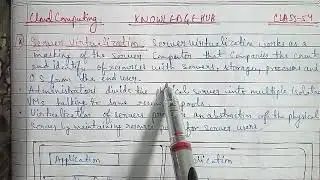 Cloud Computing KNOWLEDGE HUB CLASS-54
Server Virtualization: Server virtualization works as
a masking of the server computer that comprises the count
and identity of services with servers, storage, processors and
OS from the end user.
Administrators divide the server into multiple isolated
VMs talking to same
Virtualization of servers an abstraction of the physical
server by maintaining for server users.
Application